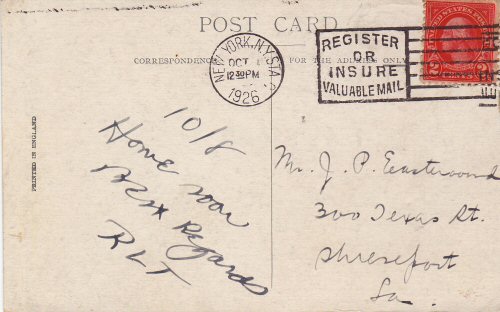 POST CARD
CORRESPONDENCE
FOR THE ADDRESS ONLY
NEW YORK, N.Y. STA.
OCT
12 30 PM
1926
REGISTER
OR
INSURE
VALUABLE MAIL
PRINTED IN ENGLAND
10/8
Home soon
Best Regards
RLT
Mr. J. P. Eastwood
300 Texas St.
Shreveport
La.